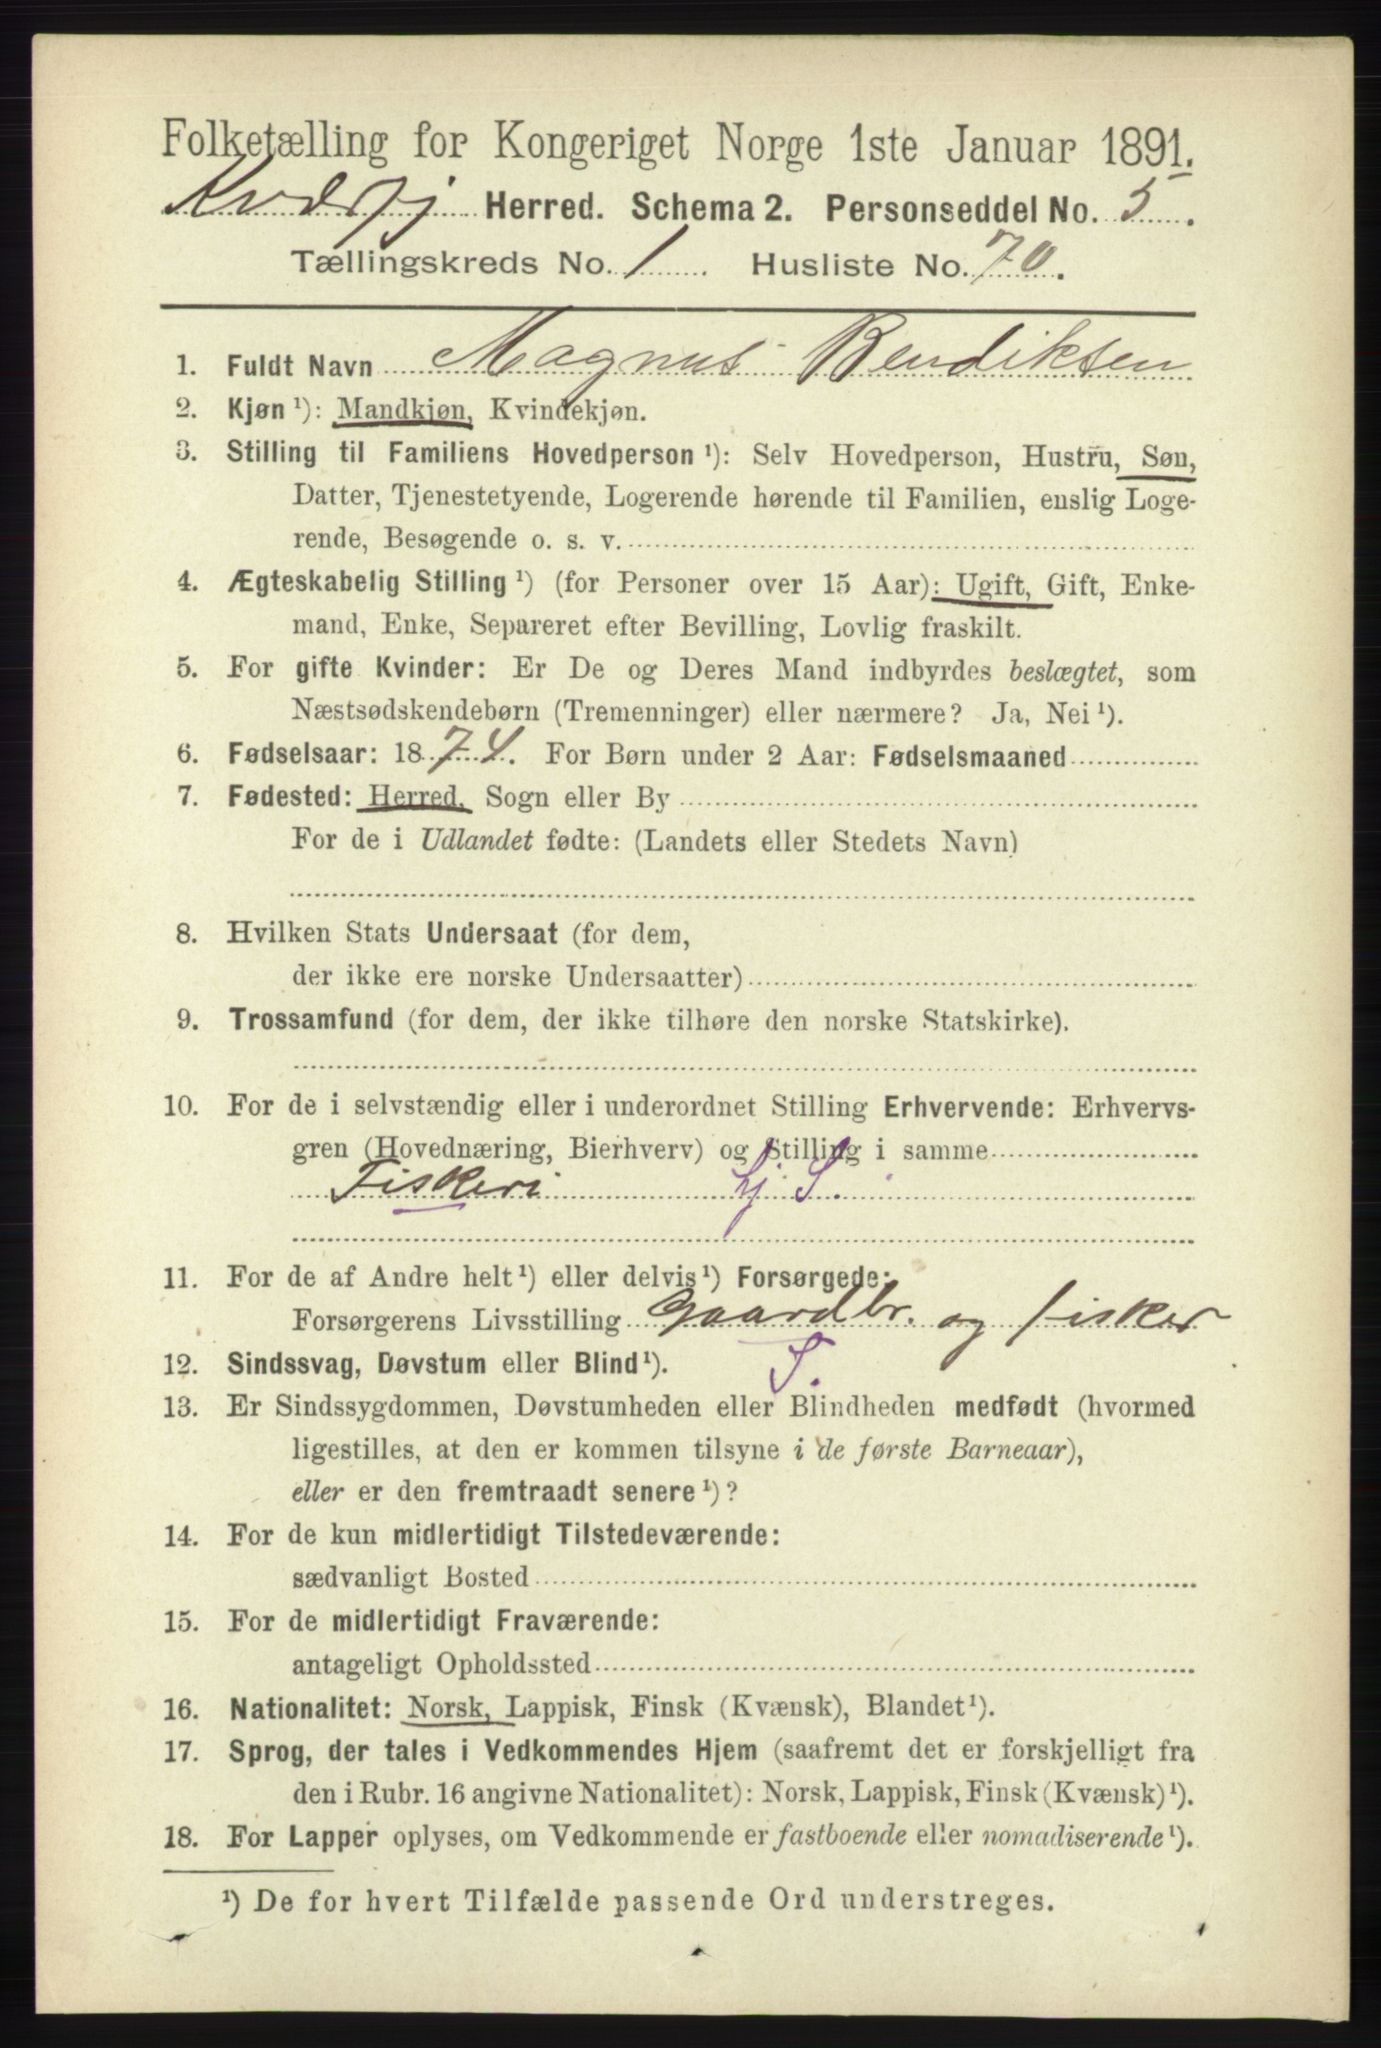 Folketælling for Kongeriget Norge 1ste Januar 1891.
Kvæfj Herred. Schema 2. Personseddel No. 5.
Tællingskreds No. 1 Husliste No. 70.
1. Fuldt Navn Magnus Bendiksen
2. Kjøn ¹): Mandkjøn, Kvindekjøn.
3. Stilling til Familiens Hovedperson ¹): Selv Hovedperson, Hustru, Søn,
Datter, Tjenestetyende, Logerende hørende til Familien, enslig Loge-
rende, Besøgende o. s. v.
4. Ægteskabelig Stilling ¹) (for Personer over 15 Aar): Ugift, Gift, Enke-
mand, Enke, Separeret efter Bevilling, Lovlig fraskilt.
5. For gifte Kvinder: Er De og Deres Mand indbyrdes beslægtet, som
Næstsødskendebørn (Tremenninger) eller nærmere? Ja, Nei ¹).
6. Fødselsaar: 1874. For Børn under 2 Aar: Fødselsmaaned
7. Fødested: Herred, Sogn eller By
For de i Udlandet fødte: (Landets eller Stedets Navn)
8. Hvilken Stats Undersaat (for dem,
der ikke ere norske Undersaatter)
9. Trossamfund (for dem, der ikke tilhøre den norske Statskirke).
10. For de i selvstændig eller i underordnet Stilling Erhvervende: Erhvervs-
gren (Hovednæring, Bierhverv) og Stilling i samme
Fiskeri hj S.
11. For de af Andre helt ¹) eller delvis ¹) Forsørgede:
Forsørgerens Livsstilling Gaardbr. og fisker
12. Sindssvag, Døvstum eller Blind ¹). S.
13. Er Sindssygdommen, Døvstumheden eller Blindheden medfødt (hvormed
ligestilles, at den er kommen tilsyne i de første Barneaar),
eller er den fremtraadt senere ¹)?
14. For de kun midlertidigt Tilstedeværende:
sædvanligt Bosted
15. For de midlertidigt Fraværende:
antageligt Opholdssted
16. Nationalitet: Norsk, Lappisk, Finsk (Kvænsk), Blandet ¹).
17. Sprog, der tales i Vedkommendes Hjem (saafremt det er forskjelligt fra
den i Rubr. 16 angivne Nationalitet): Norsk, Lappisk, Finsk (Kvænsk) ¹).
18. For Lapper oplyses, om Vedkommende er fastboende eller nomadiserende ¹).
¹) De for hvert Tilfælde passende Ord understreges.